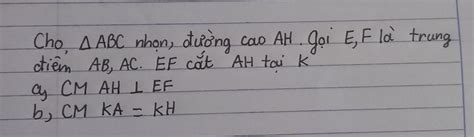 Cho, △ABC nhọn, đường cao AH. Gọi E, F là trung
điểm AB, AC. EF cắt AH tại K
a, CM AH ⊥ EF
b, CM KA = KH